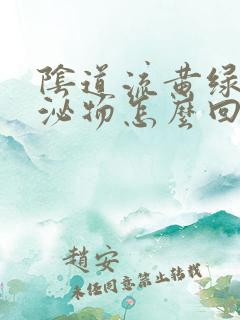 陰道流黄绿
泌物怎麽回
趙安
未经同意禁止转载